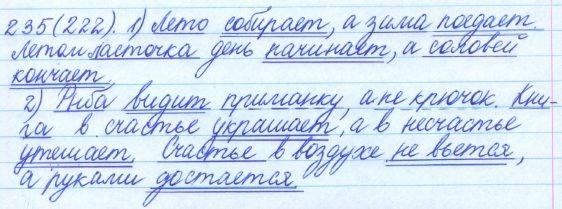 235(222). 1) Лето собирает, а зима поедает.
Летом ласточка день начинает, а соловей
кончает.
2) Рыба видит приманку, а не крючок. Кни-
га в счастье украшает, а в несчастье
утешает. Счастье в воздухе не вьется,
а руками достается.